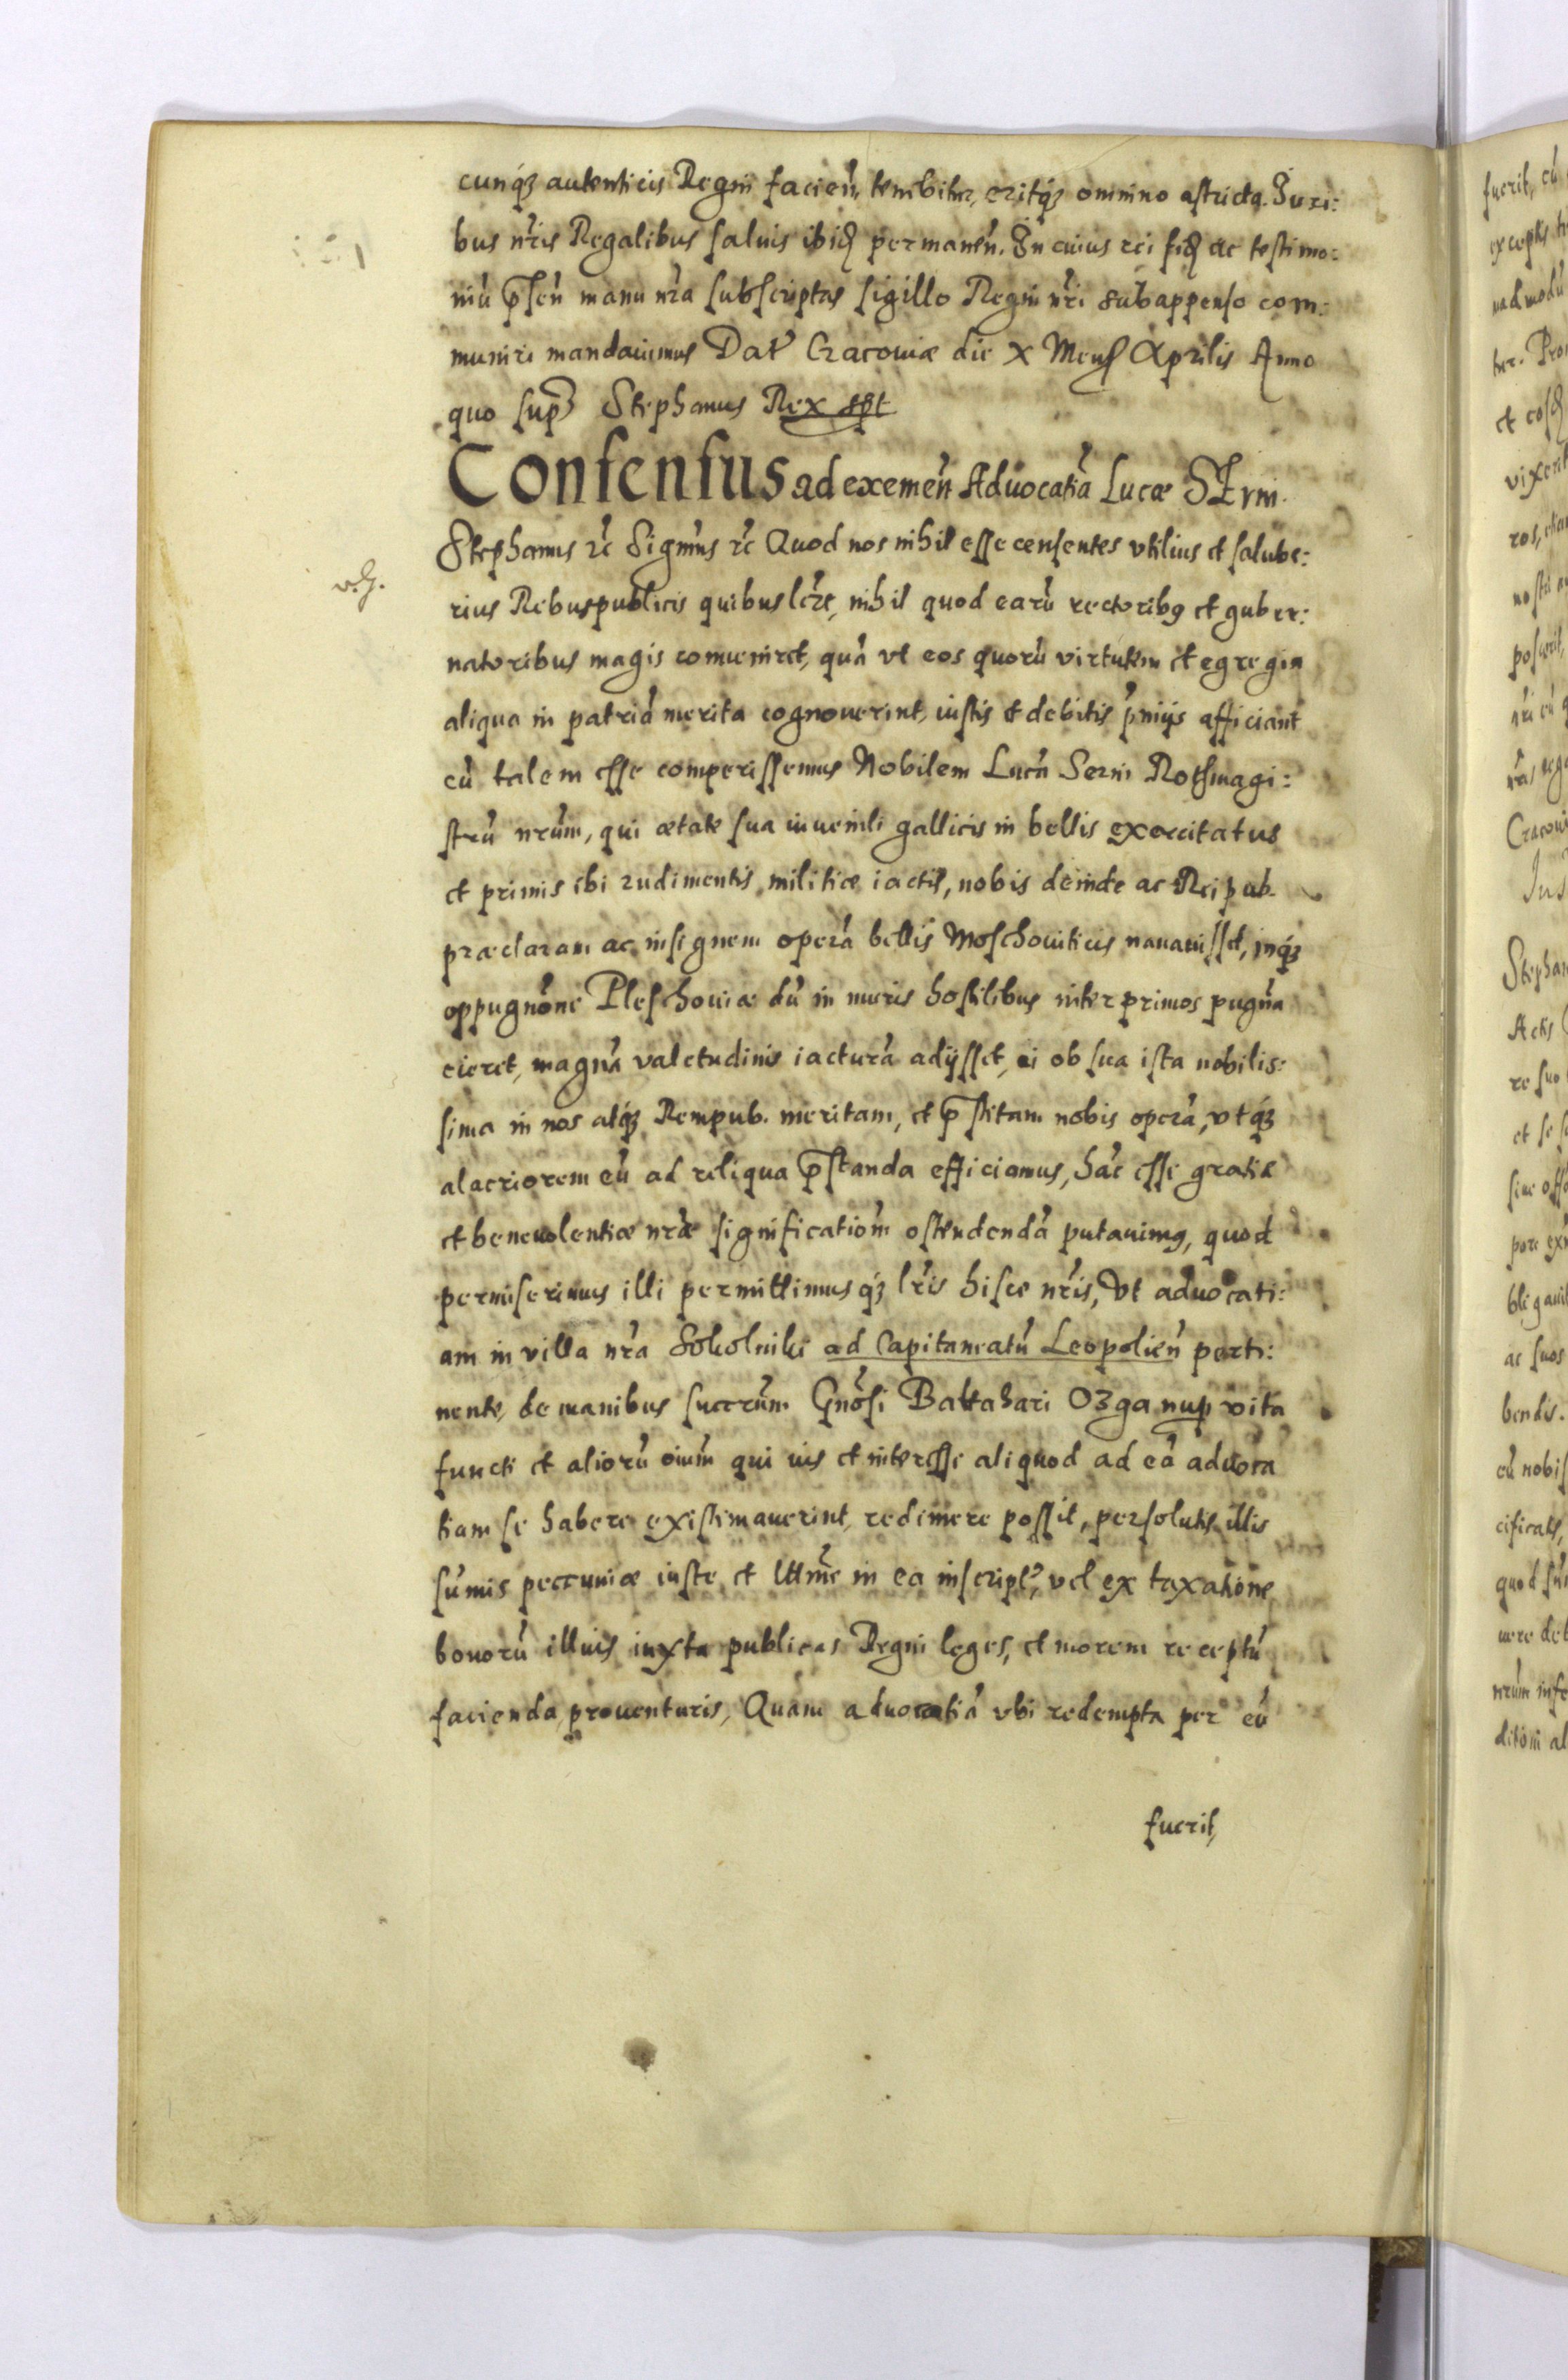 cunq́ꝫ autenticis Regni facień, tenebitur, eritq́ꝫ omnino astricta. Iuri:
bus nr̃is Regalibus saluis ibiđ permaneń. In cuius rei fiđ ac testimo:
niũ p̃seń manu nr̃a subscriptas sigillo Regni nr̃i subappenso com:
muniri mandauimus Dat̃ Cracouiæ die X Mens̃ Aprilis Anno
quo sup̃ Stephanus Rex sst
Consensus ad exemeñ Aduocatiã Lucæ SErni.
Stephanus ꝛc̃ Sigm̃us ꝛc̃ Quod nos nihil esse censentes vtilius et salube:
rius Rebuspublicis quibuslibet, nihil quod earũ rectoribꝫ et guber:
natoribus magis conueniret, quã vt eos quorũ virtutem et egregia
aliqua in patriã merita cognouerint, iustis et debitis p̃mijs afficiant
cũ talem esse comperissemus Nobilem Lucã Serni Rothmagi:
strũ nr̃um, qui ætate sua iuuenili gallicis in bellis exercitatus
et primis ibi rudimentis militiæ iactis, nobis deinde ac Reipub.
præclaram ac insignem operã bellis Moschouiticis nauauisset, inq́ꝫ
oppugnõne Pleschouiæ dũ in muris hostilibus inter primos pugnã
cieret, magnã valetudinis iacturã adijsset, ei ob sua ista nobilis:
sima in nos atq́ꝫ Rempub. meritam, et p̃stitam nobis operã, vtq́ꝫ
alacriorem eũ ad reliqua p̃standa efficiamus, hãc esse gratiæ
et beneuolentiæ nr̃æ significatiom̃ ostendendã putauimꝫ, quod
permiserimus illi permittimusq́ꝫ lr̃is hisce nr̃is, Vt aduocati:
am in villa nr̃a Sokolniki ad Capitaneatũ Leopolień perti:
nente, de manibus succrũm Gnõsi Baltazari Ozga nup̃ vita
functi et aliorũ oiũm qui ius et interesse aliquod ad eã aduoca
tiam se habere existimauerint, redimere possit, persolutis illis
sũmis peccuniæ iuste et lttm̃e in ea inscript̃, vel ex taxatione
bonorũ illius iuxta publicas Regni leges, et morem receptũ
facienda prouenturis, Quam aduocatiã vbi redempta per eũ
fuerit,